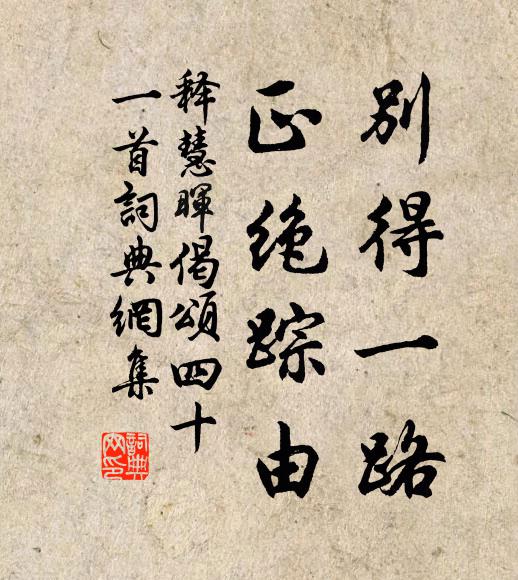 别得一路
正绝踪由
释慧晖偈颂四十
一首詞典網集
詞典
网印